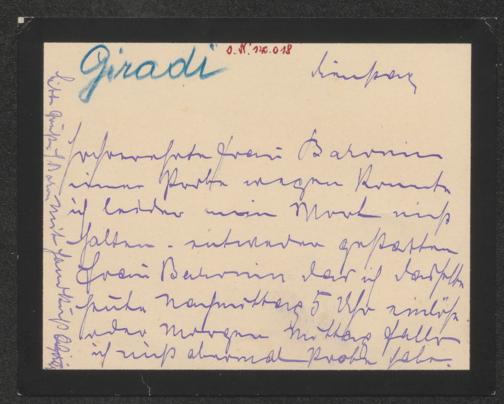 Giradi
Dienstag
Hochverehrte Frau Baronin
einer Probe wegen konnte
ich leider mein Wort nicht
halten. entweder gestatten
Frau Baronin das ich dasselbe
heute Nachmittag 5 Uhr einlöse
oder Morgen Mittag falls
ich nicht abermal Probe habe.
mit Handkuß